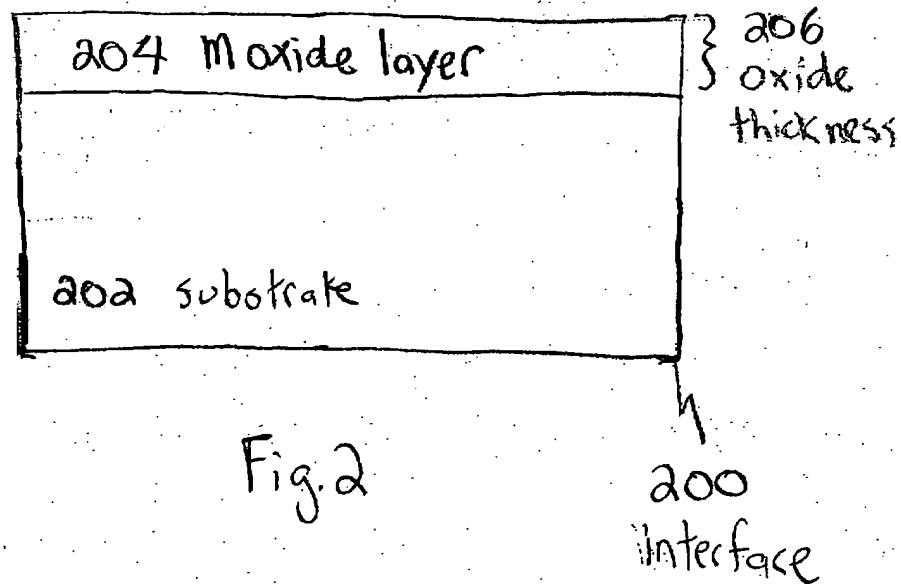 204 M oxide layer
206
oxide
thickness
202 substrate
Fig. 2
200
interface